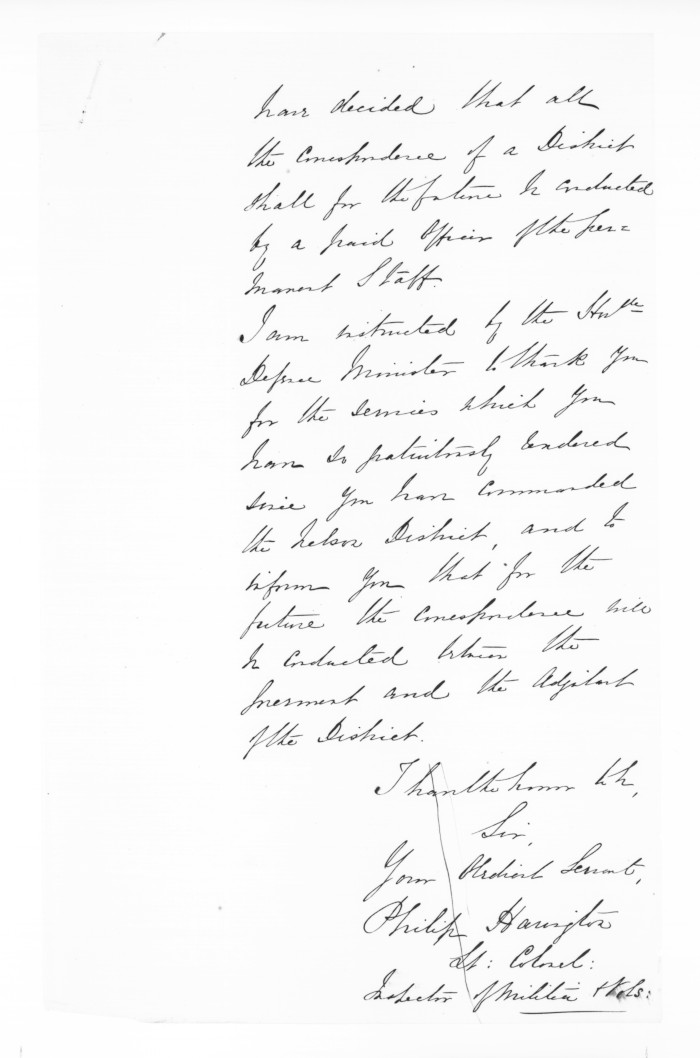 have decided that all
the correspondence of a District
shall for the future be conducted
by a paid Officer of the Per=
manent Staff.
I am instructed by the Honble
Defence Minister to thank you
for the services which you
have so gratuitously rendered
since you have commanded
the Nelson District, and to
inform you that for the
future the correspondence will
be conducted between the
Government and the Adjutant
of the District.
I have the honor to be,
Sir,
Your Obedient Servant,
Philip Harington
Lt: Colonel:
Inspector of Militia & Vols: